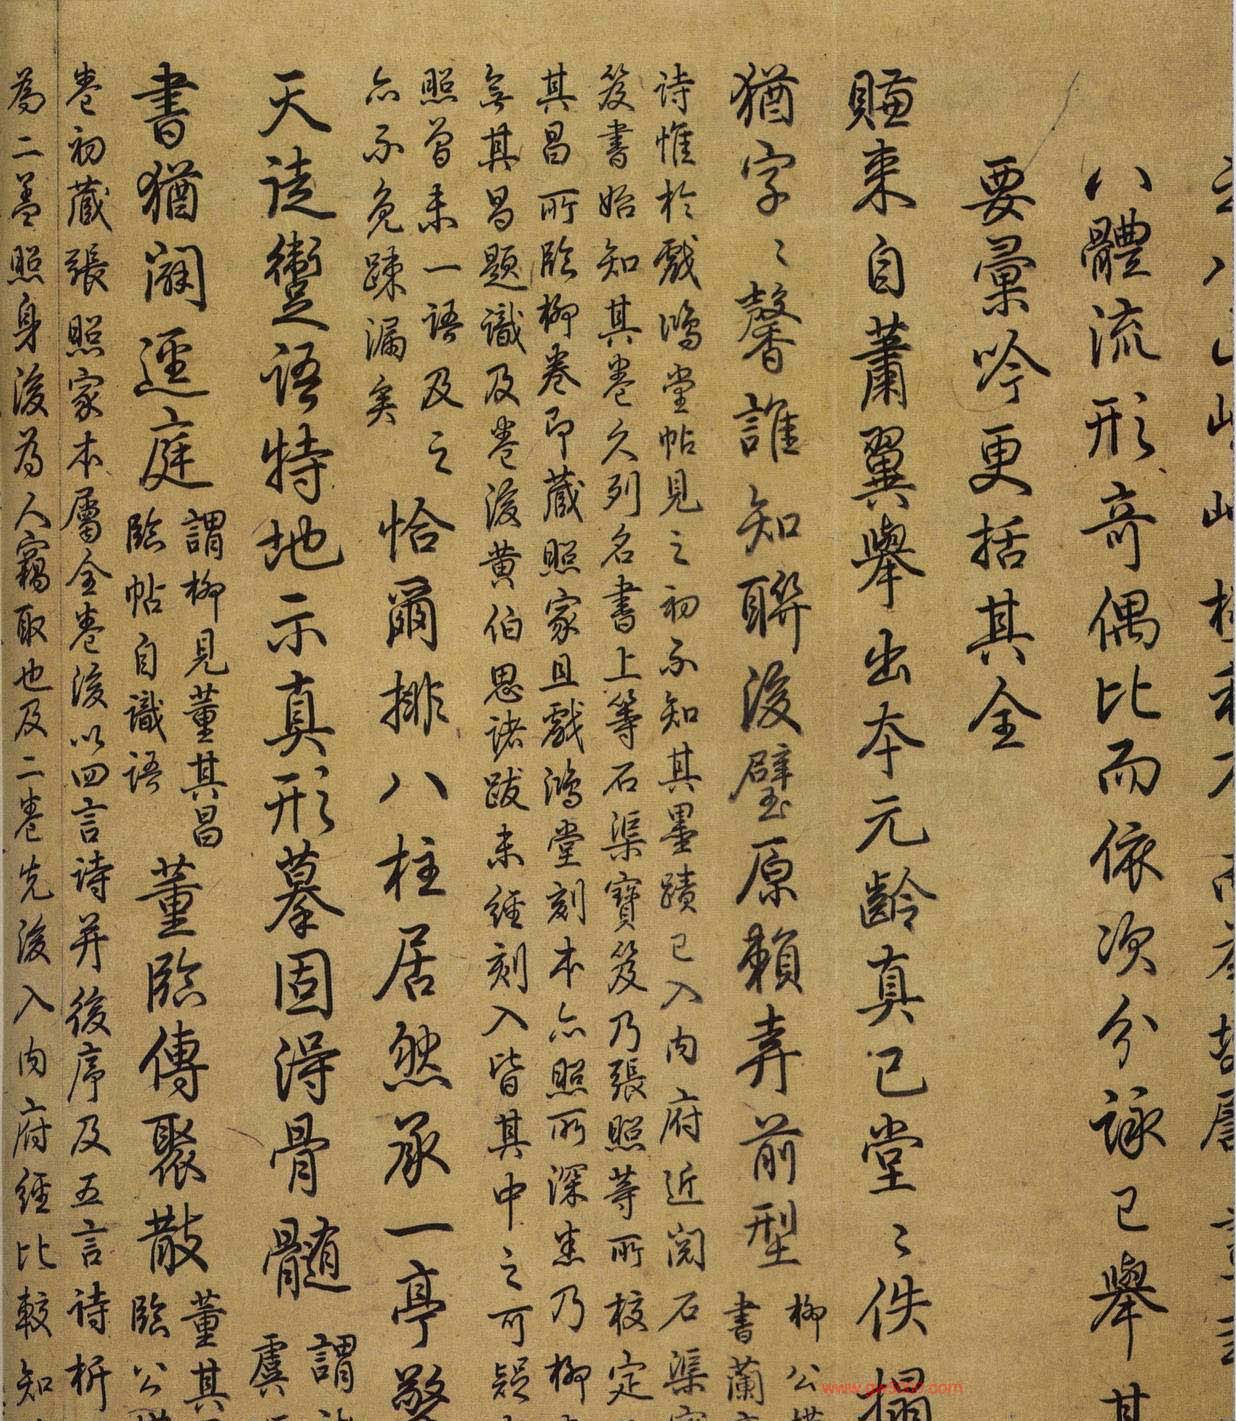 八體流形奇偶比而依次分詠已舉其
要彙吟更括其全
賺來自蕭翼舉出本元齡真已堂〻佚搨
猶字〻馨誰知聯後璧原賴弆前型
柳公
書蘭
詩惟於戲鴻堂帖見之初不知其墨蹟已入內府近閱石渠
笈書始知其卷久列名書上等石渠寶笈乃張照等所校定
其昌所臨柳卷即藏照家且戲鴻堂刻本亦照所深悉乃柳
無其昌題識及卷後黃伯思諸跋未經刻入皆其中之可疑
照曾未一語及之
亦不免踈漏矣
恰爾排八柱居然承一亭擎
天徒躗語特地示真形摹固得骨髓
謂
虞
書猶闢逕庭
謂柳見董其昌
臨帖自識語
董臨傳聚散
董其
臨公
卷初藏張照家本屬全卷後以四言詩并後序及五言詩析
為二蓋照身後為人竊取也及二卷先後入內府經比較知
www.g